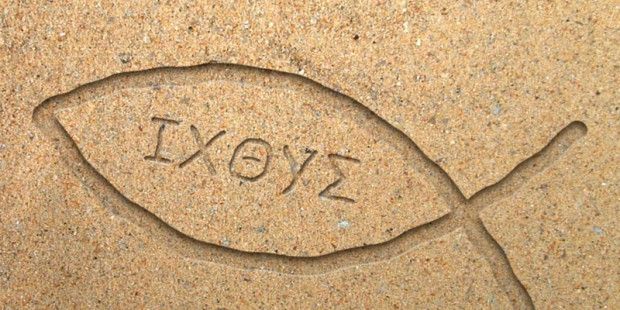 ΙΧΘΥΣ